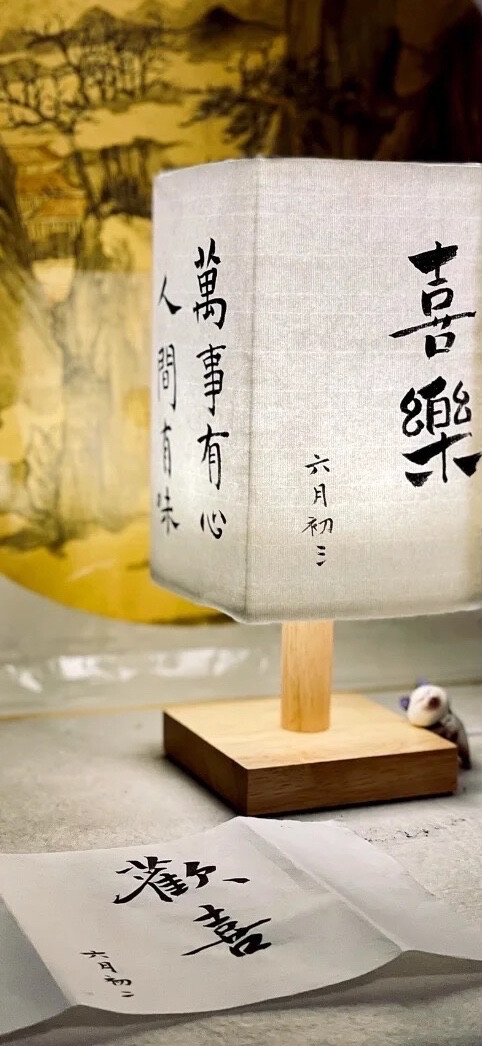 喜樂
六月初三
萬事有心
人間有味
歡喜
六月初二